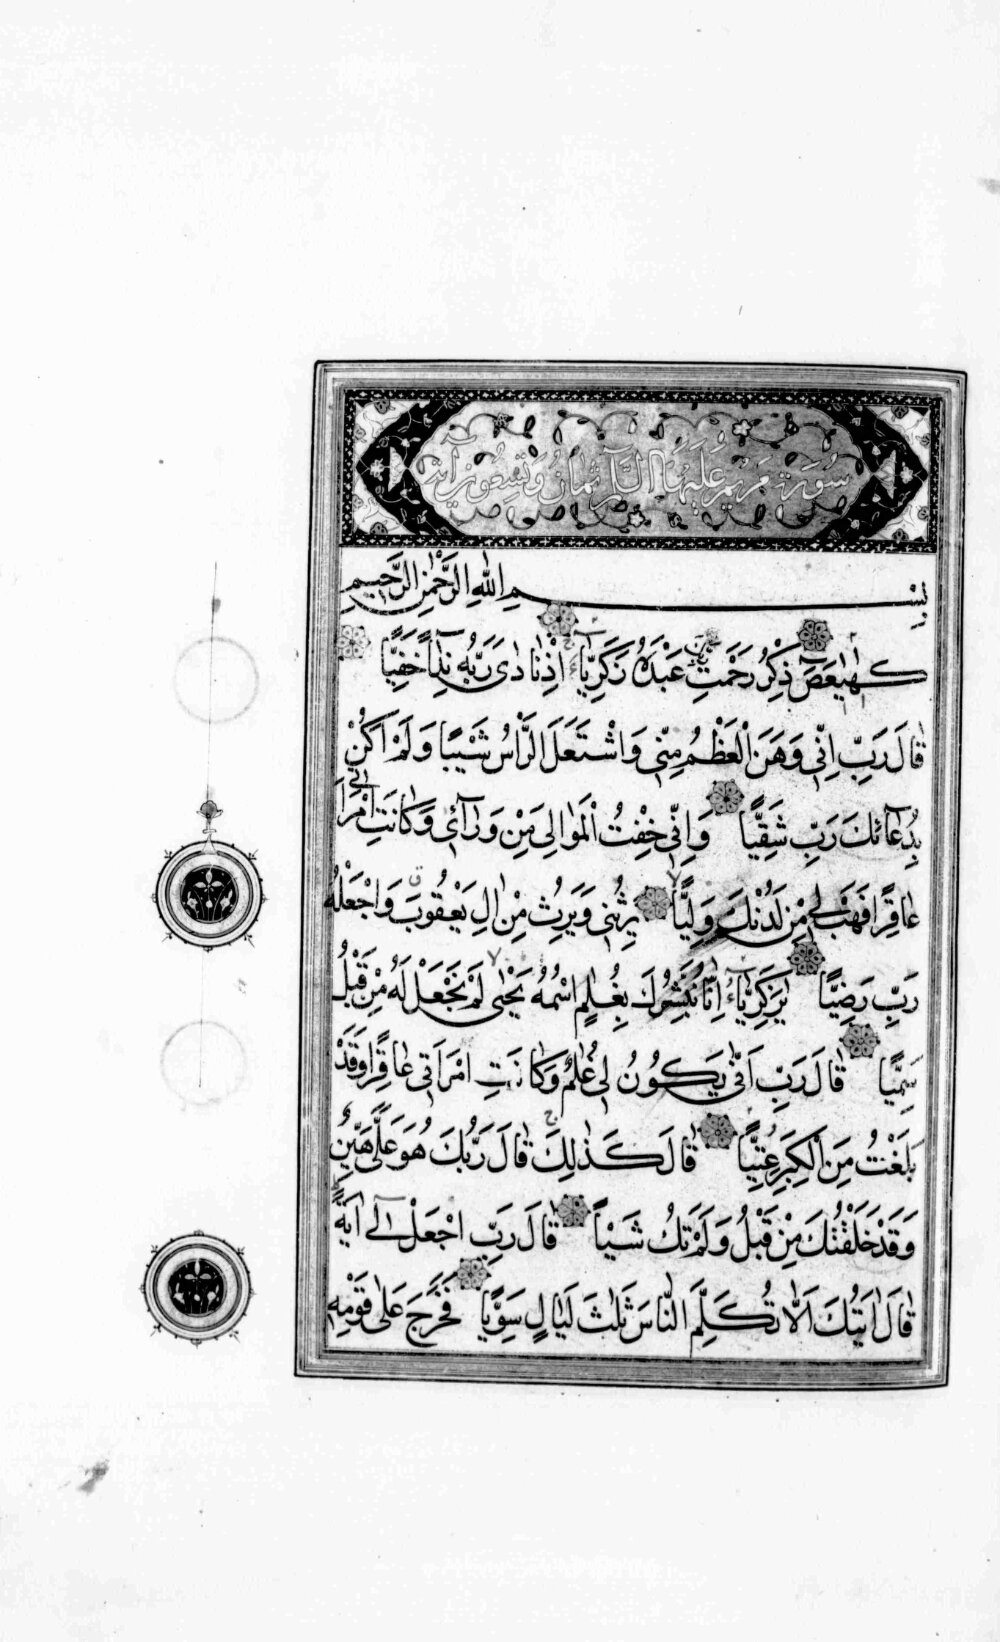 سُورَة مَرْيَم عَلَيْهَا السَّلَام ثَمَانٌ وَتِسْعُونَ آيَة
بِسْمِ اللهِ الرَّحْمٰنِ الرَّحِيمِ
كٓهٰيٰعٓصٓ ذِكْرُ رَحْمَتِ رَبِّكَ عَبْدَهُ زَكَرِيَّاءَ اِذْ نَادٰى رَبَّهُ نِدَآءً خَفِيًّا
قَالَ رَبِّ اِنِّي وَهَنَ الْعَظْمُ مِنِّي وَاشْتَعَلَ الرَّاْسُ شَيْبًا وَلَمْ اَكُنْ
بِدُعَآئِكَ رَبِّ شَقِيًّا وَاِنِّي خِفْتُ الْمَوَالِيَ مِنْ وَرَآئِي وَكَانَتِ امْرَاَتِي
عَاقِرًا فَهَبْ لِي مِنْ لَدُنْكَ وَلِيًّا يَرِثُنِي وَيَرِثُ مِنْ اٰلِ يَعْقُوبَ وَاجْعَلْهُ
رَبِّ رَضِيًّا يٰزَكَرِيَّآءُ اِنَّا نُبَشِّرُكَ بِغُلٰمٍ اسْمُهُ يَحْيٰى لَمْ نَجْعَلْ لَهُ مِنْ قَبْلُ
سَمِيًّا قَالَ رَبِّ اَنّٰى يَكُونُ لِي غُلٰمٌ وَكَانَتِ امْرَاَتِي عَاقِرًا وَقَدْ
بَلَغْتُ مِنَ الْكِبَرِ عِتِيًّا قَالَ كَذٰلِكَ قَالَ رَبُّكَ هُوَ عَلَيَّ هَيِّنٌ
وَقَدْ خَلَقْتُكَ مِنْ قَبْلُ وَلَمْ تَكُ شَيْـًٔا قَالَ رَبِّ اجْعَلْ لِي اٰيَةً
قَالَ اٰيَتُكَ اَلَّا تُكَلِّمَ النَّاسَ ثَلٰثَ لَيَالٍ سَوِيًّا فَخَرَجَ عَلٰى قَوْمِهِ